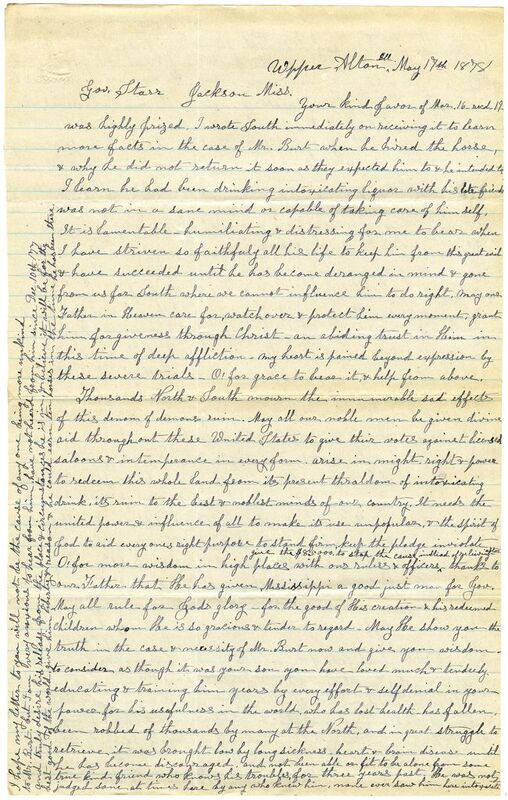 Upper Alton Ill. May 17th 1878
Gov. Starr Jackson Miss.
Your kind favor of Mar. 16. recd 19.
was highly prized. I wrote South immediately on receiving it to learn
more facts in the case of Mr. Burt when he hired the horse,
& why he did not return it soon as they expected him to & he intended to
I learn he had been drinking intoxicating liquor with his late friends
was not in a sane mind or capable of taking care of him self.
It is lamentable - humiliating & distressing for me to bear when
I have striven so faithfuly all his life to keep him from this great evil
& have succeeded until he has become deranged in mind & gone
from us far South where we cannot influence him to do right, may our
Father in Heaven care for watch over & protect him every moment, grant
him forgiveness through Christ - an abiding trust in Him in
this time of deep affliction - my heart is pained beyond expression by
these severe trials - O! for grace to bear it, & help from above.
Thousands North & South mourn the innumerable sad effects
of this demon of demons rum. May all our noble men be given divine
aid throughout these United States to give their votes against licensed
saloons & intemperance in every form. arise in might, right & power
to redeem this whole land from its present thraldom of intoxicating
drink, its ruin to the best & noblest minds of our country. It needs the
united power & influence of all to make its use unpopular, & the spirit of
God to aid every ones right purpose to stand firm, keep the pledge inviolate
give the to stop the cause instead of
O! for more wisdom in high places with our rulers & officers, thanks to
our Father that He has given Mississippi a good just man for Gov.
May all rule for Gods glory - for the good of His creation & his redeemed
children whom He is so gracious & tender to regard - May He show you the
truth in the case & necessity of Mr. Burt now and give you wisdom
to consider, as though it was your son you have loved much & tenderly
educating & training him years by every effort & self denial in your
power for his usefulness in the world, who has lost health, has fallen,
been robbed of thousands by many at the North, and in great struggle to
retrieve it was brought low by long sickness, heart & brain disease until
he has become discouraged, and not been able or fit to be alone from some
true kind friend who knows his troubles, for three years past, He was not
judged sane at times here by any who knew him, none ever saw him here intoxicated
I hope my letter to you will not be the cause of any one being more unkind
to Mr. Burt, but I am very anxious to hear from him, have not heard from him since Dec 10th /77
and truly desire his release from the place & circumstances he is in, believing it will be for the
best good of the world, give him liberty & reason & the comforts from the losses in the time he has been there.